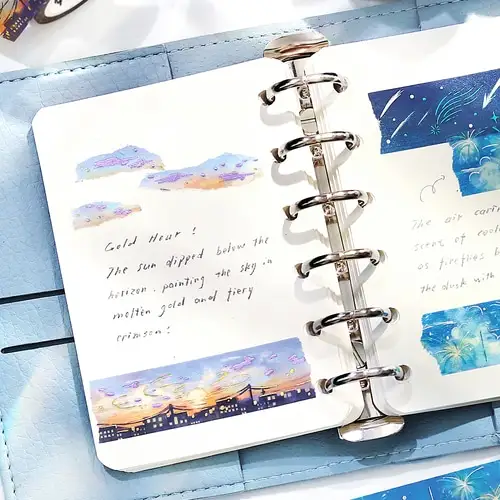 Gold Hour !
The sun dipped below the
horizon, painting the sky in
molten gold and fiery
crimson!
The air carri
scent of cool
as fireflies b
the dusk with